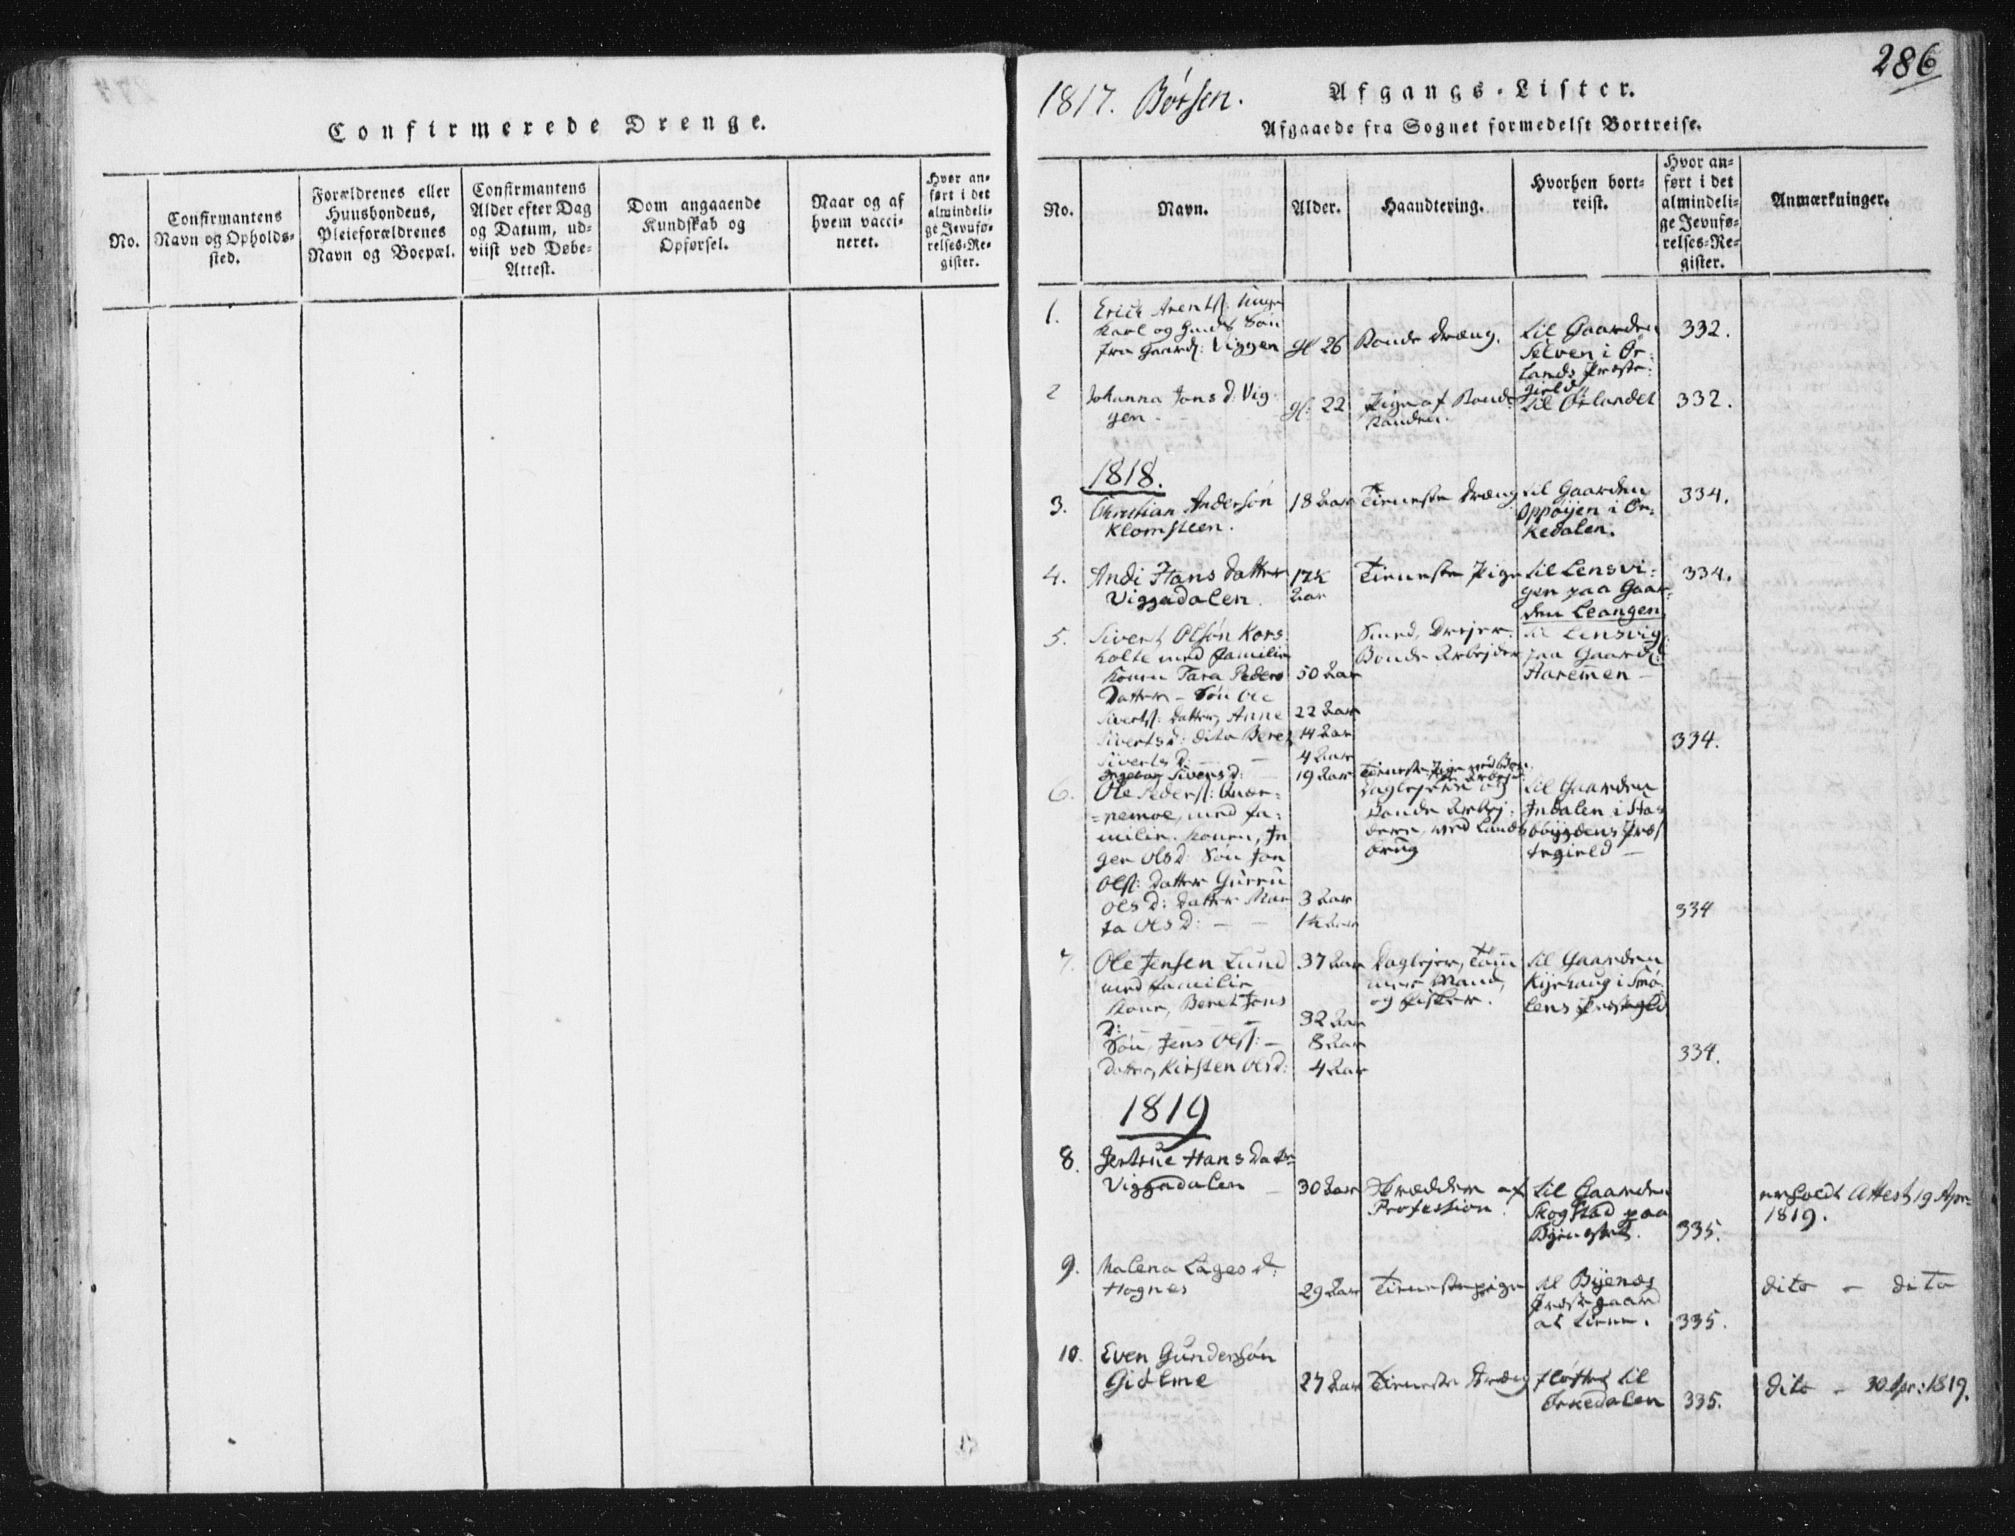 Confirmerede Drenge.
No.
Confirmantens
Navn og Opholds-
sted.
Forældrenes eller
Huusbondens,
Pleieforældrenes
Navn og Boepæl.
Confirmantens
Alder efter Dag
og Datum, ud-
viist ved Døbe-
Attest.
Dom angaaende
Kundskab og
Opførsel.
Naar og af
hvem vacci-
neret.
Hvor an-
ført i det
almindeli-
ge Jevnfø-
relses-Re-
gister.
286
1817. Børsen.
Afgangs-Lister.
Afgaaede fra Sognet formedelst Bortreise.
No.
Navn.
Alder.
Haandtering.
Hvorhen bort-
reist.
Hvor an-
ført i det
almindeli-
ge Jevnfø-
relses-Re-
gister.
Anmærkninger.
1.
Erich Arentss: Unge
Karl og Gmds Søn
fra Gaard: Viggen
gl 26
Bonde Dræng.
til Gaarden
Selven i Ør-
lands Præste-
gield
332.
2
Johanna Jonsd: Vig-
gen.
gl: 22
Pige af Bonde
Standen.
til Ørlandet
332.
1818.
3.
Christian Andersøn
Klomsteen.
18 Aar
Tieneste Dræng
til Gaarden
Oppøijen i Or-
kedalen.
334.
4.
Andi Hans Datter
Viggadalen.
17½
Aar
Tieneste Pige
til Lensvi-
gen paa Gaar-
den Leangen
334.
5.
Sivert Olsøn Kors-
holte med Familie
Konen Tara Peders
Datter - Søn Ole
Sivertss: Datter, Anne
Sivertsd: dito Beret
Sivertsd: -
Ingebor Siversd:
50 Aar
22 Aar
14 Aar
4 Aar
19 Aar
Smed, Drejer
Bonde Arbejder
Tieneste Pige
til Lensvig
paa Gaard:
Haremen -
334.
6.
Ole Peders: Quær-
nemoe, med Fa-
milie. Konen, In
ger Olsd: Søn Jon
Olss: Datter Gurru
Olsd: Datter Mar
ta Olsd: -
3 Aar
1½ Aar
Daglejer og
Bonde Arbej-
dere, med Lands
brug
til Gaarden
Indalen i Sta-
bøijgdens Præs
tegield -
334
7.
Ole Jensen Lund
med Familie
Kone, Beret Jens
D: -
Søn, Jens Olss: -
Datter, Kirsten Olsd:
37 Aar
32 Aar
8 Aar
4 Aar
Daglejer, Tøm
mer Mand,
og Fisker.
til Gaarden
Kijrhaug i Smø-
lens Præstegld
334.
1819
8.
Jertrue Hans Datr
Viggadalen
30 Aar
Skrædder af
Profession.
til Gaarden
Skogstad paa
Byenæsset.
335.
erholdt Attest 19 Apr:
1819.
9.
Malena Lagesd:
Hognes
29 Aar
Tienestepige
til Bijenæs
Præstegaard
at tiene.
335.
dito - dito
10.
Even Gundersøn
Giølme
27 Aar
Tieneste Dræng
fløttet til
Orkedalen
335.
dito - 30 Apr: 1819.